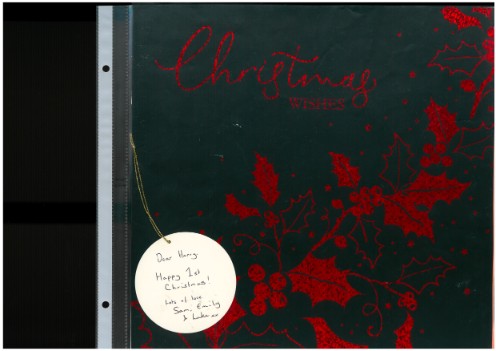 Christmas
WISHES
Dear Harry
Happy 1st
Christmas!
Lots of love
Sam, Emily
& Luke xx